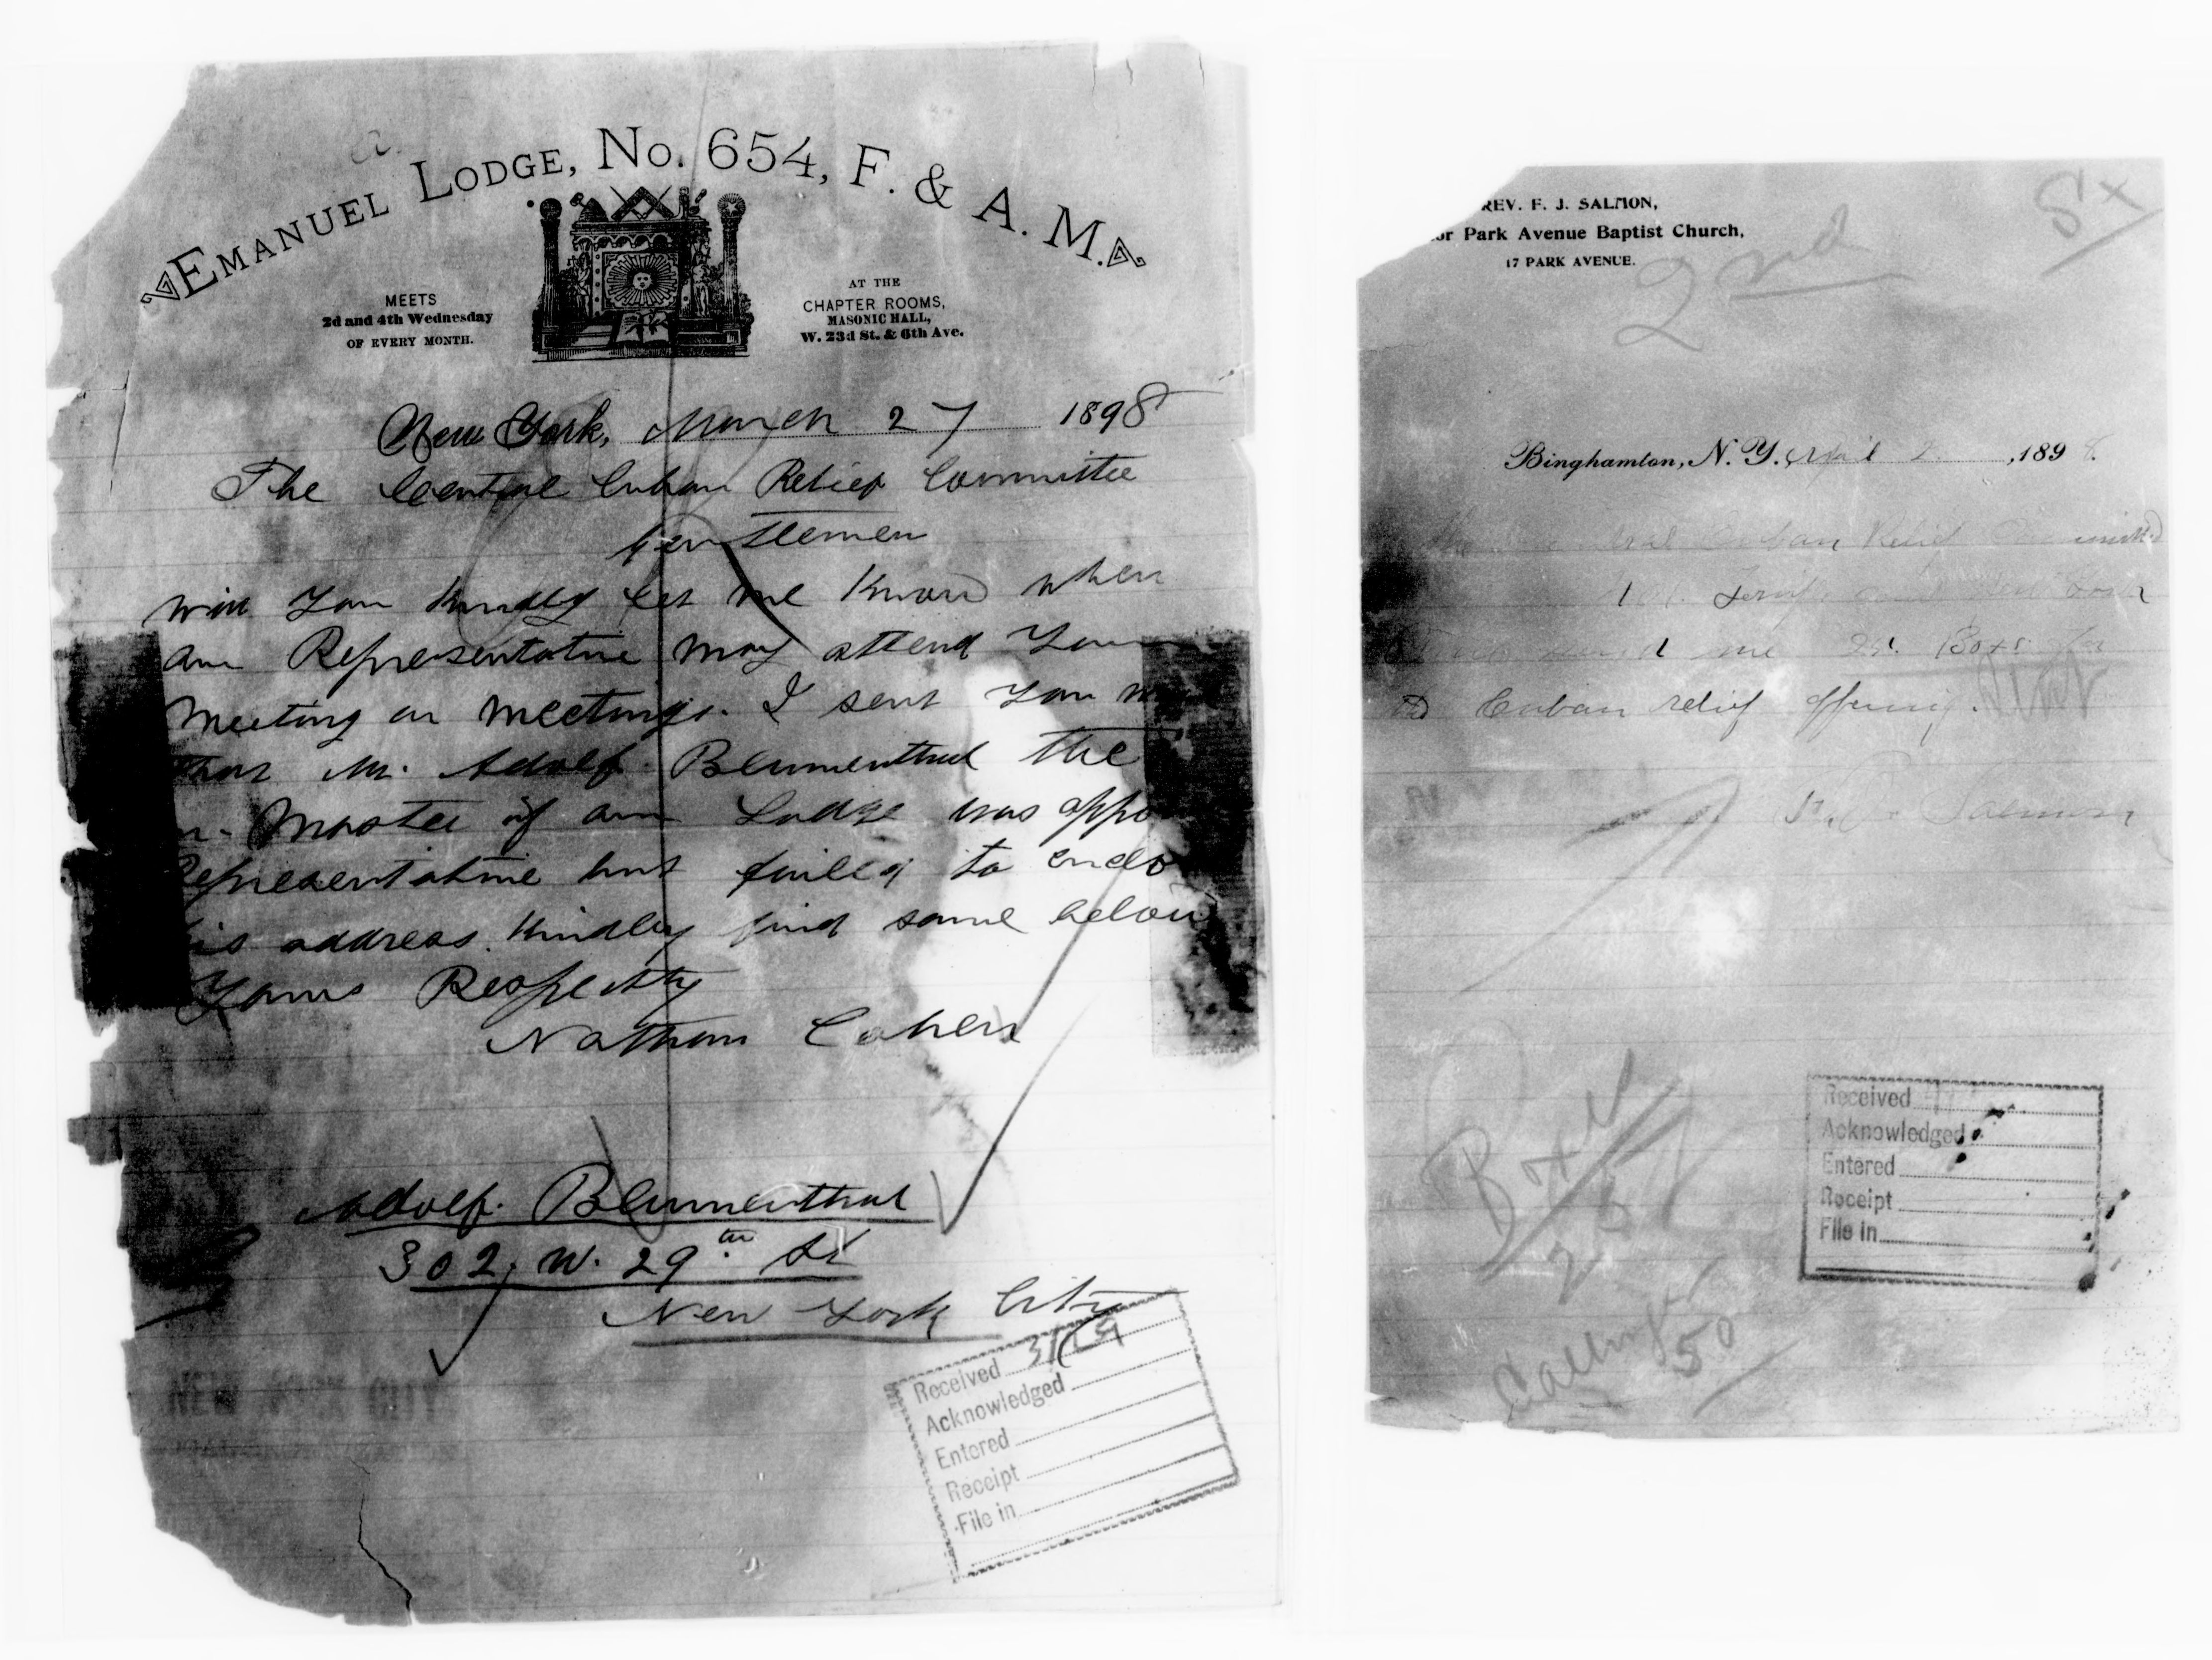 EMANUEL LODGE, No. 654, F. & A. M.
MEETS
2d and 4th Wednesday
OF EVERY MONTH.
AT THE
CHAPTER ROOMS,
MASONIC HALL,
W. 23d St. & 6th Ave.
New York, March 27 1898
The Central Cuban Relief Committee
Gentlemen
Will You Kindly let me Know when
our Representative may attend Your
Meeting or meetings. I sent You
that Mr. Adolf. Blumenthal the
Master of our Lodge was appo
Representative but failed to enclo
his address. Kindly find same below
Yours Respectfy
Nathan Cohen
Adolf. Blumenthal
302, W. 29th St
New York City
NEW YORK CITY
Received
Acknowledged
Entered
Receipt
File in
REV. F. J. SALMON,
or Park Avenue Baptist Church,
17 PARK AVENUE.
2nd
Binghamton, N. Y. April 2 , 1898.
Cuban Relief
me 25. Boxes for
Cuban relief offering.
Salmon
Boxes
25
50
Received
Acknowledged
Entered
Receipt
File in